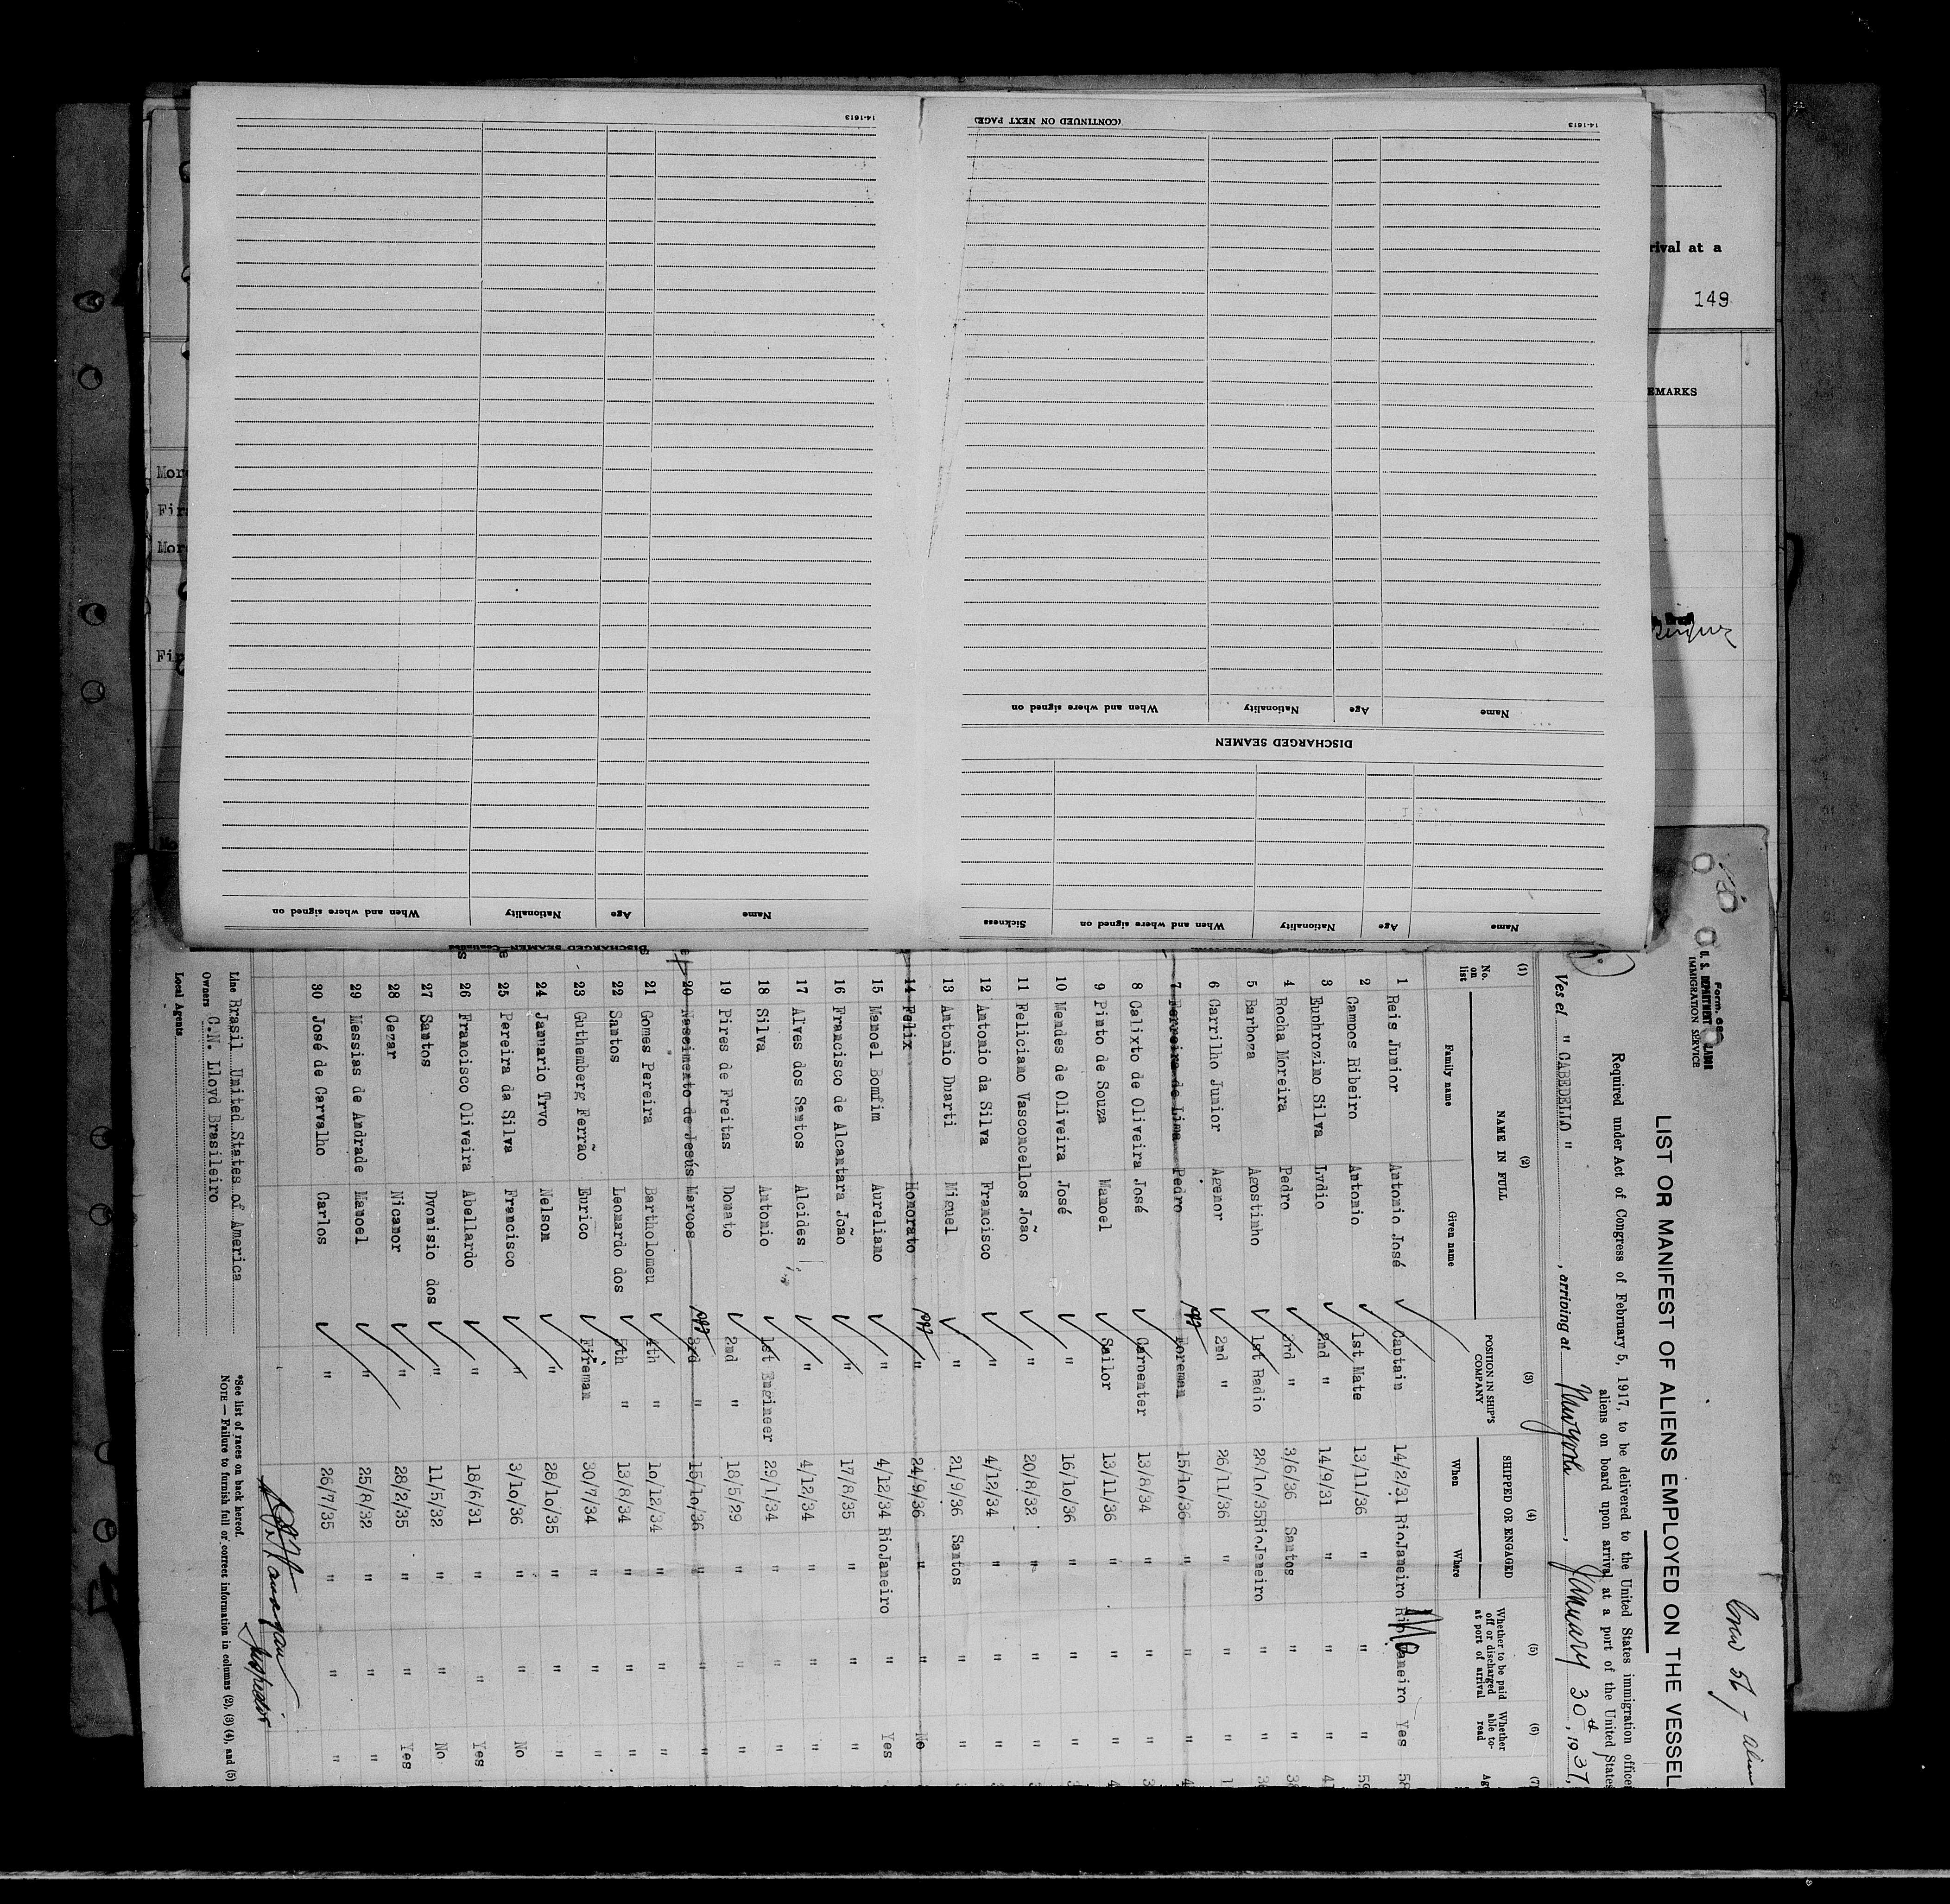 14-1613
(CONTINUED ON NEXT PAGE)
14-1613
Name
Age
Nationality
When and where signed on
DISCHARGED SEAMEN
Name
Age
Nationality
When and where signed on
Sickness
Name
Age
Nationality
When and where signed on
DISCHARGED SEAMEN—Continued
rival at a
149
EMARKS
More
Fire
More
Fir
Mo
Form 680
U. S. DEPARTMENT LABOR
IMMIGRATION SERVICE
LIST OR MANIFEST OF ALIENS EMPLOYED ON THE VESSEL
Required under Act of Congress of February 5, 1917, to be delivered to the United States immigration officer
aliens on board upon arrival at a port of the United States
Vessel " CABEDELLO ", arriving at New York, January 30th, 1937,
(1) (2) (3) (4) (5) (6) (7)
No. on list
NAME IN FULL
Family name Given name
POSITION IN SHIP'S COMPANY
SHIPPED OR ENGAGED
When Where
Whether to be paid off or discharged at port of arrival
Whether able to read
Ag
1 Reis Junior Antonio José Captain 14/2/31 RioJaneiro No Yes 58
2 Campos Ribeiro Antonio 1st Mate 13/11/36 " " " 59
3 Euphrozino Silva Lydio 2nd " 14/9/31 " " " 41
4 Rocha Moreira Pedro 3rd " 3/6/36 Santos " " 38
5 Barboza Agostinho 1st Radio 28/10/35 RioJaneiro " " 36
6 Carrilho Junior Agenor 2nd " 26/11/36 " " " 1
7 Ferreira de Lima Pedro Foreman 15/10/36 " " " 4
8 Calixto de Oliveira José Carpenter 13/8/34 " " " 3
9 Pinto de Souza Manoel Sailor 13/11/36 " " " 4
10 Mendes de Oliveira José " 16/10/36 " " " 3
11 Feliciano Vasconcellos João " 20/8/32 " " "
12 Antonio da Silva Francisco " 4/12/34 " " "
13 Antonio Duarti Miguel " 21/9/36 Santos " "
14 Felix Honorato " 24/9/36 " " No
15 Manoel Bomfim Aureliano " 4/12/34 RioJaneiro " Yes
16 Francisco de Alcantara João " 17/8/35 " " "
17 Alves dos Santos Alcides " 4/12/34 " " "
18 Silva Antonio 1st Engineer 29/1/34 " " "
19 Pires de Freitas Donato 2nd " 18/5/29 " " "
20 Nascimento de Jesús Marcos 3rd " 15/10/36 " " "
21 Gomes Pereira Bartholomeu 4th " 10/12/34 " " "
22 Santos Leonardo dos 5th " 13/8/34 " " "
23 Guthemberg Ferrão Eurico Fireman 30/7/34 " " "
24 Januario Tryo Nelson " 28/10/35 " " "
25 Pereira da Silva Francisco " 3/10/36 " " No
26 Francisco Oliveira Abellardo " 18/6/31 " " Yes
27 Santos Dyonisio dos " 11/5/32 " " No
28 Cezar Nicanor " 28/2/35 " " Yes
29 Messias de Andrade Manoel " 25/8/32 " " "
30 José de Carvalho Carlos " 26/7/35 " " "
Line Brasil United States of America
Owners C.N. Lloyd Brasileiro
Local Agents
Inspector
*See list of races on back hereof.
NOTE — Failure to furnish full or correct information in columns (2), (3) (4), and (5)